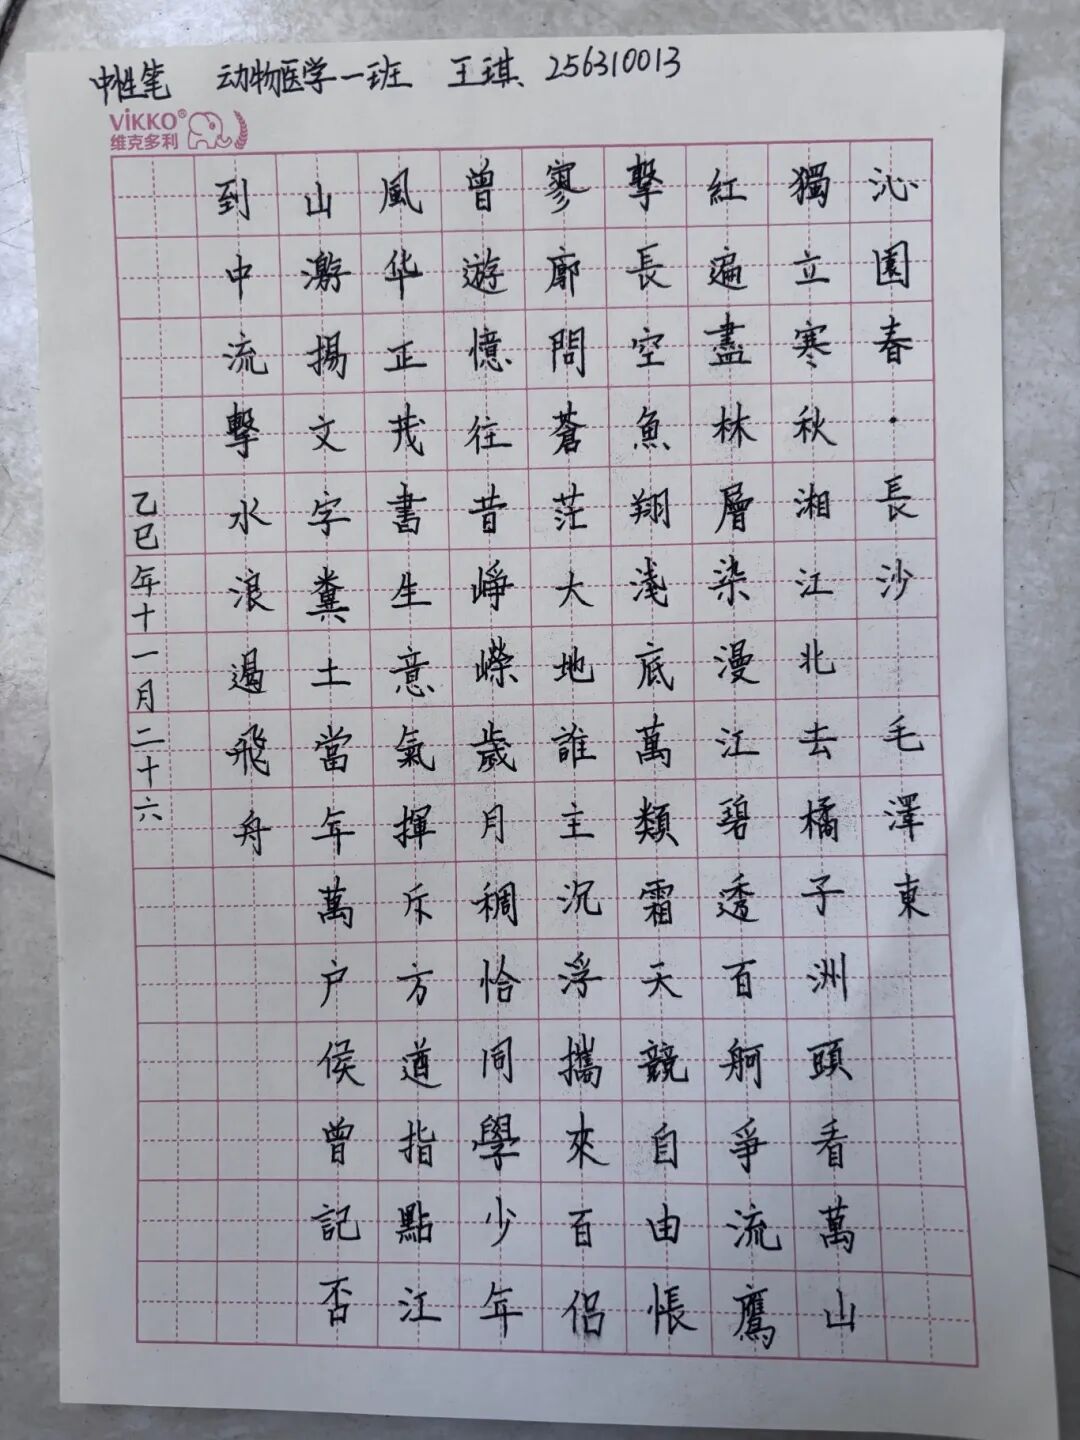 中性笔 动物医学一班 王琪 256310013
ViKKO®
维克多利
沁園春·長沙 毛澤東
獨立寒秋湘江北去橘子洲頭看萬山
紅遍盡林層染漫江碧透百舸爭流鷹
擊長空魚翔淺底萬類霜天競自由悵
寥廓問蒼茫大地誰主沉浮攜來百侣
曾遊憶往昔崢嶸歲月稠恰同學少年
風华正茂書生意氣揮斥方遒指點江
山激揚文字糞土當年萬户侯曾記否
到中流擊水浪遏飛舟
乙巳年十一月二十六